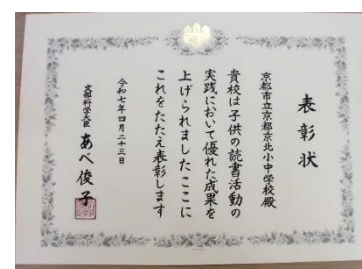 表彰状
京都市立京都京北小中学校殿
貴校は子供の読書活動の
実践において優れた成果を
上げられましたここに
これをたたえ表彰します
令和七年四月二十三日
文部科学大臣 あべ俊子